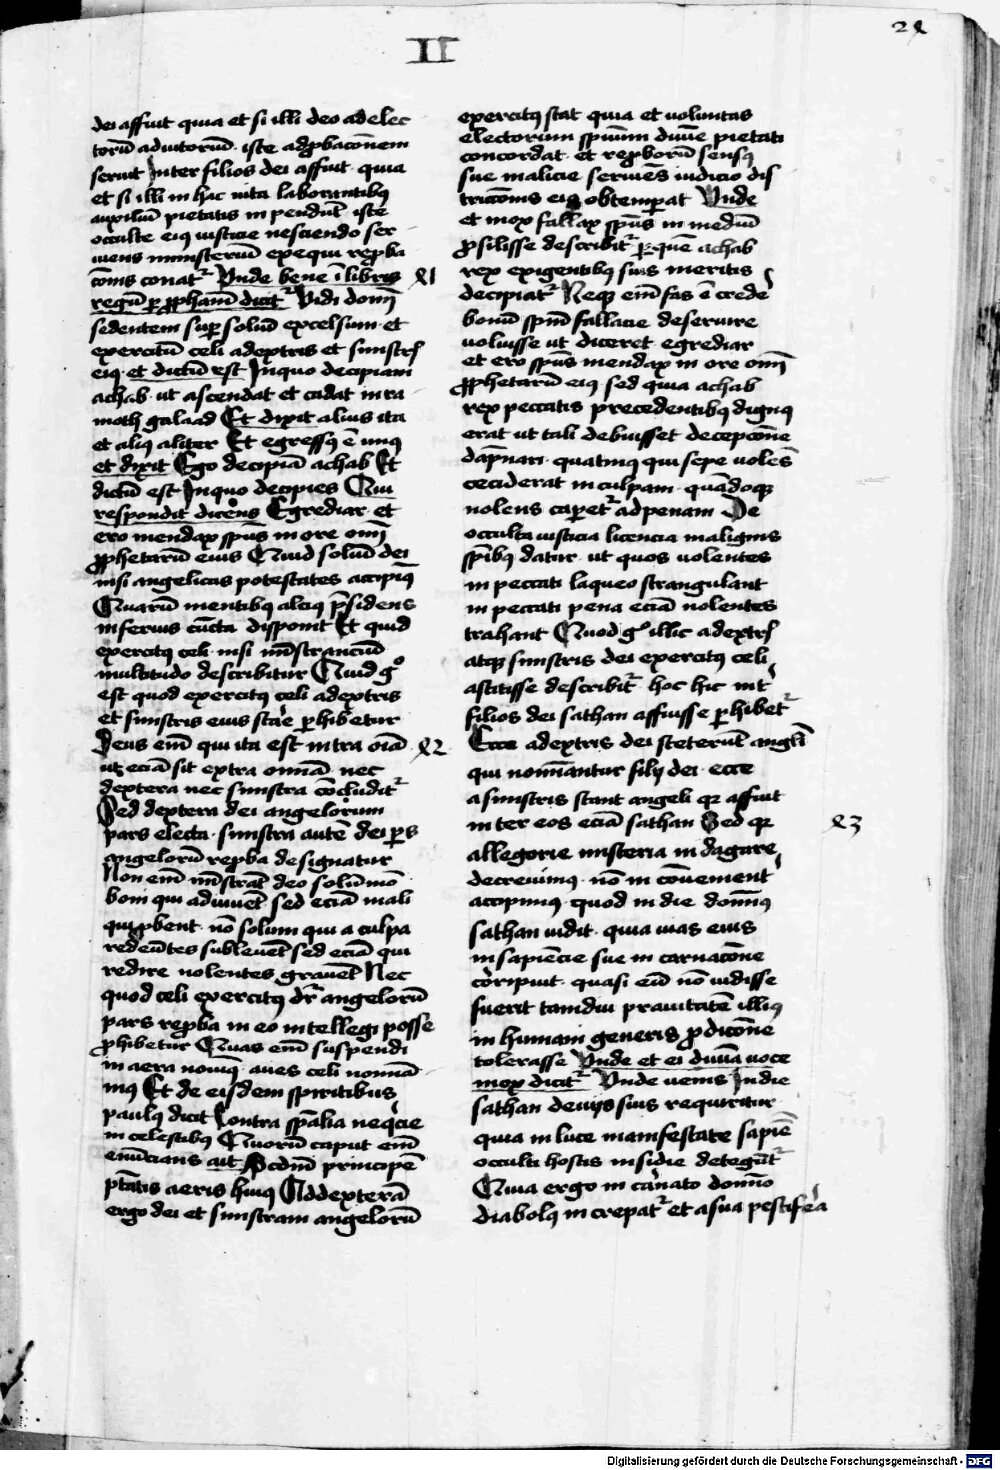 II
dei affuit quia et si illi deo ad elec
torū adiutoriū · iste ad ꝓbacōnem
seruit Inter filios dei affuit · quia
et si illi in hac uita laborantibꝯ
auxiliū pietatis inpendūt iste
occulte eiꝯ iusticie nesciendo ser
uiens ministeriū exequi reproba
cōnis conatr Unde bene ī libris
regū per ꝓphetam dicitr Vidi domī
sedentem super soliū excelsum · et
exercitū celi adextris et sinistris
eiꝯ · et dictū est In quo decipiam
achab · ut ascendat et cadat in ra
moth galaad Et dixit alius ita
et aliꝯ aliter Et egressꝯ ē unꝯ
et dixit Ego decipiā achab Et
dictū est In quo decipies Qui
respondit dicens Egrediar et
ero mendax spūs in ore omī
ꝓphetarū eius Quid soliū dei
nisi angelicas potestates accipimꝯ
Quarū mentibꝯ alciꝯ p̄sidens
inferius cūcta disponit Et quid
exercitꝯ celi · nisi mīstranciū
multitudo describitur Quid gͦ
est quod exercitꝯ celi adextris
et sinistris eius stare perhibetur
Deus enī qui ita est intra oīa
ut eciā sit extra omīa nec
dextera nec sinistra concluditr
Sed dextera dei angelorum
pars electa · sinistra autē dei pars
angelorū reproba designatur
Non enī mīstrāt deo solūmō
boni qui adiuuēt sed eciā mali
qui ꝓbent · nō solum qui a culpa
redeūtes subleuēt sed eciā qui
redire nolentes grauēt Nec
quod celi exercitꝯ dr̄ angelorū
pars reproba in eo intellegi posse
ꝓhibetur Quas enī suspendi
in aera nouimꝯ · aues celi nomīa
mꝯ Et de eisdem spiritibus
paulꝯ dicit Contra spālia neqcie
in celestibꝯ Quorū caput enī
enūcians ait Scdm̄ principē
ptātis aeris huiꝯ Ad dexterā
ergo dei et sinistram angelorū
exercitꝯ stat quia et uoluntas
electorum spirituum diuīe pietati
concordat · et reproborū sensꝯ
sue malicie seruiēs iudicio dis
trictōnis eiꝯ obtemperat Unde
et mox fallax spūs in mediū
ꝓsilisse describitr per quē achab
rex exigentibꝯ suis meritis
decipiatr Neqꝫ enī fas ē crede
bonū spm̄ fallacie deseruire
uoluisse ut diceret egrediar
et ero spūs mendax in ore omī
ꝓphetarū eiꝯ sed quia achab
rex peccatis precedentibꝯ dignꝯ
erat ut tali debuisset decepcōne
dāpnari · quatinꝯ qui sepe uolēs
ceciderat in culpam · quādoqꝫ
nolens caperet ad penam De
occulta iusticia licencia malignis
spibꝯ datur · ut quos uolentes
in peccati laqueo strangulant
in peccati pena eciā nolentes
trahant Quod gͦ illic adextris
atqꝫ sinistris dei exercitꝯ celi
astitisse describitr · hoc hic int̄
filios dei sathan affuisse perhibetr
Ecce adextris dei steterūt angli
qui nomīantur filij dei · ecce
a sinistris stant angeli qꝛ affuit
inter eos eciā sathan Sed qꝛ
allegorie misteria indagare
decreuimꝯ · nō inconuenient
accipimꝯ · quod in die domīꝯ
sathan uidit · quia uias eius
in sapiēcie sue incarnacōne
corripuit · quasi eū nō uidisse
fuerit tamdiu prauitatē illiꝯ
in humani generis ꝑdicōne
tolerasse Unde et ei diuīa uoce
mox dicitr Unde uenis In die
sathan deuijs suis requiritur
quia in luce manifestate sapiē
occulti hostis insidie detegūtr
Quia ergo incarnato domīo
diabolꝯ increpatr et a sua pestifera